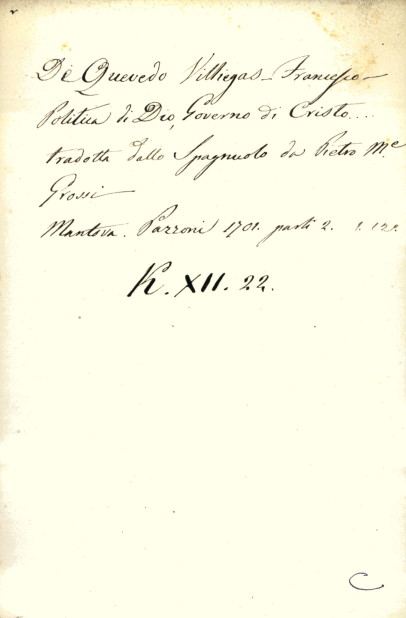 De Quevedo Villiegas - Francesco -
Politica di Dio, Governo di Cristo....
tradotta dallo Spagnuolo da Pietro Mᵉ
Grossi
Mantova. Pazzoni 1701. parti 2.
K. XII. 22.
C